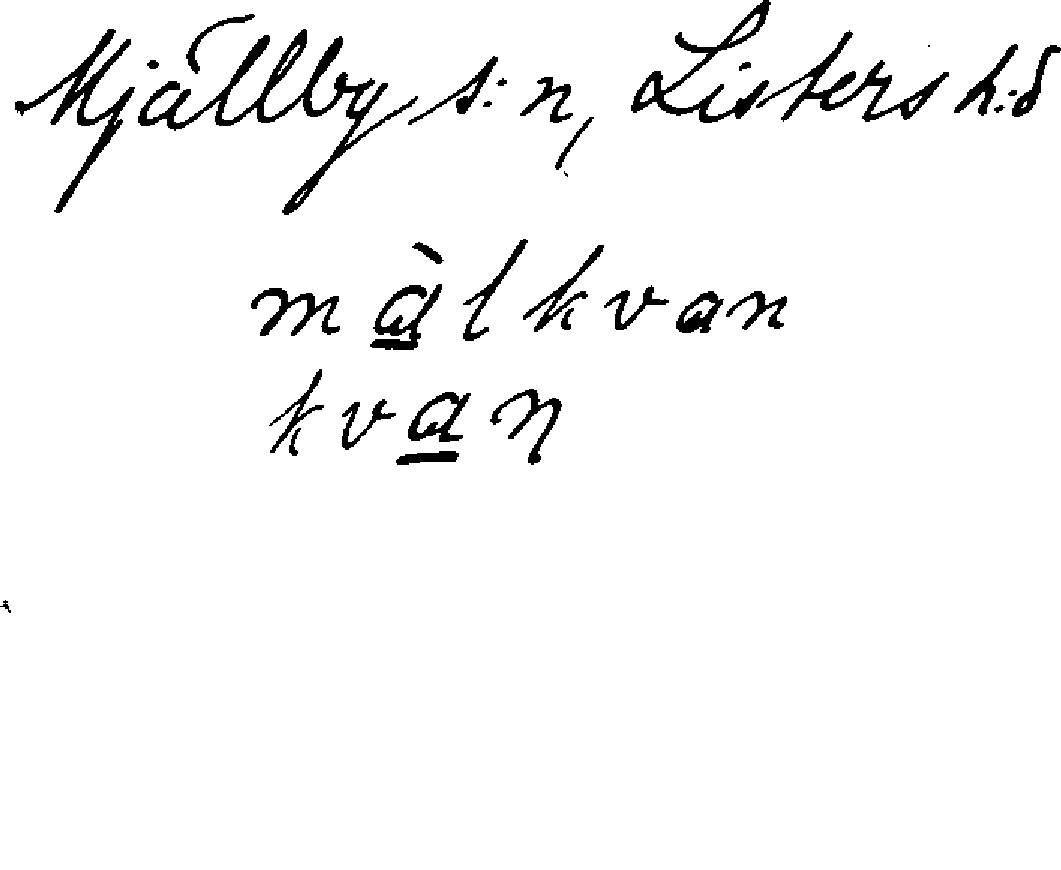 Mjällby s:n, Listers h:d
màlkvan
kvaŋ